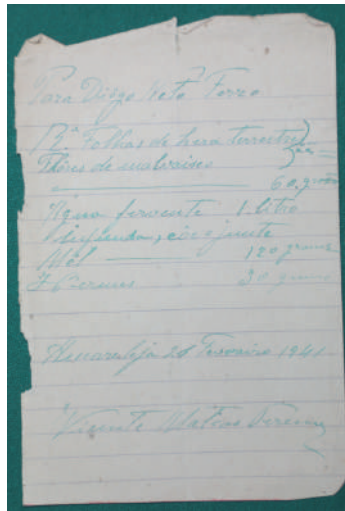 Para Diogo Neto Ferro
R.ª Folhas de hera terrestre
Flores de malvaisco } ãa =
60 gram
Agua fervente 1 litro
Infunda, côe e junte
Mél 120 grams
30 grams
20 Fevereiro 1941
Vicente Matias Pereira